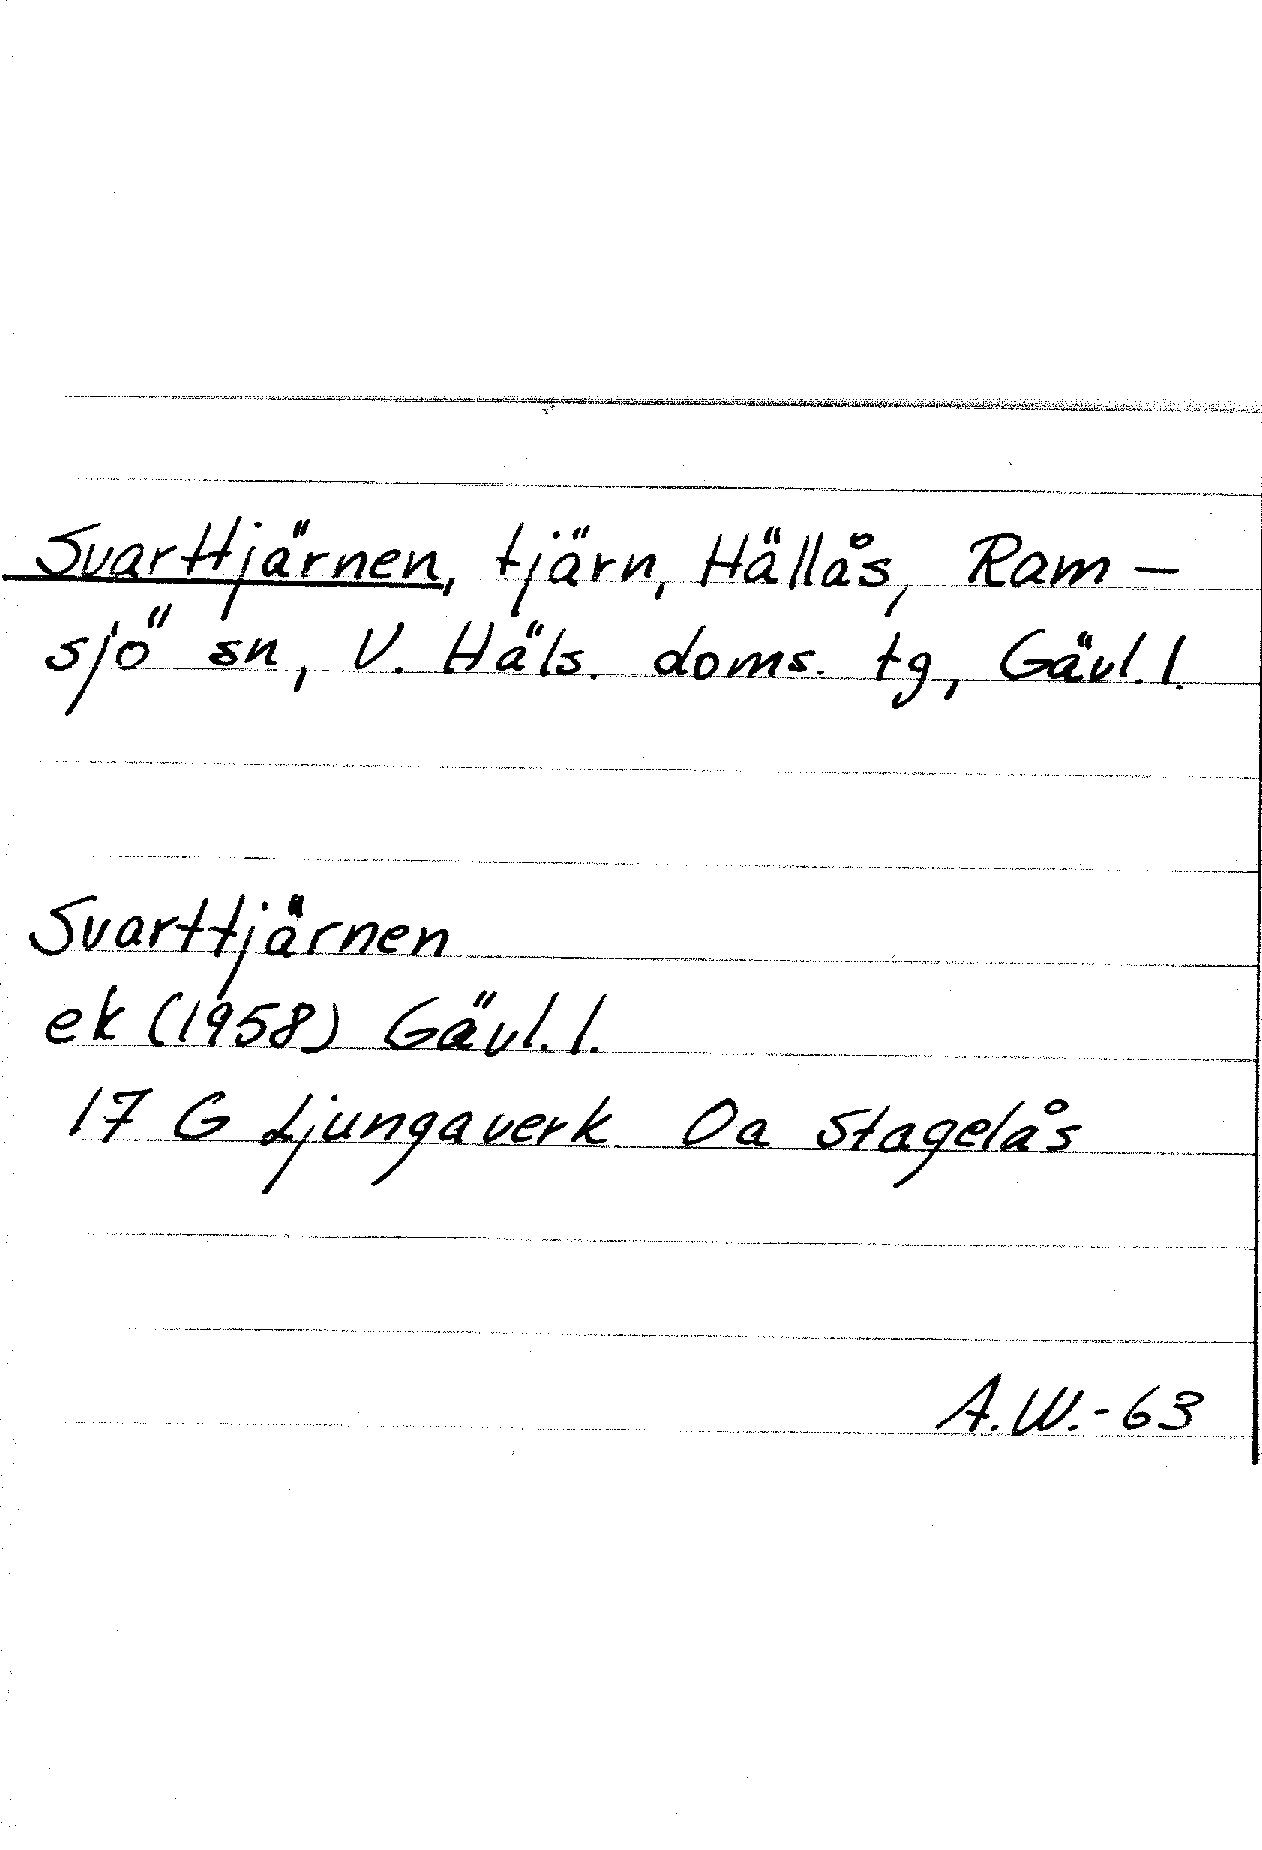 Svarttjärnen, tjärn, Hällås, Ram-
sjö sn, V. Häls. doms. tg, Gävl. l.
Svarttjärnen
ek (1958) Gävl. l.
17 G Ljungaverk Oa Stagelås
A.W.-63